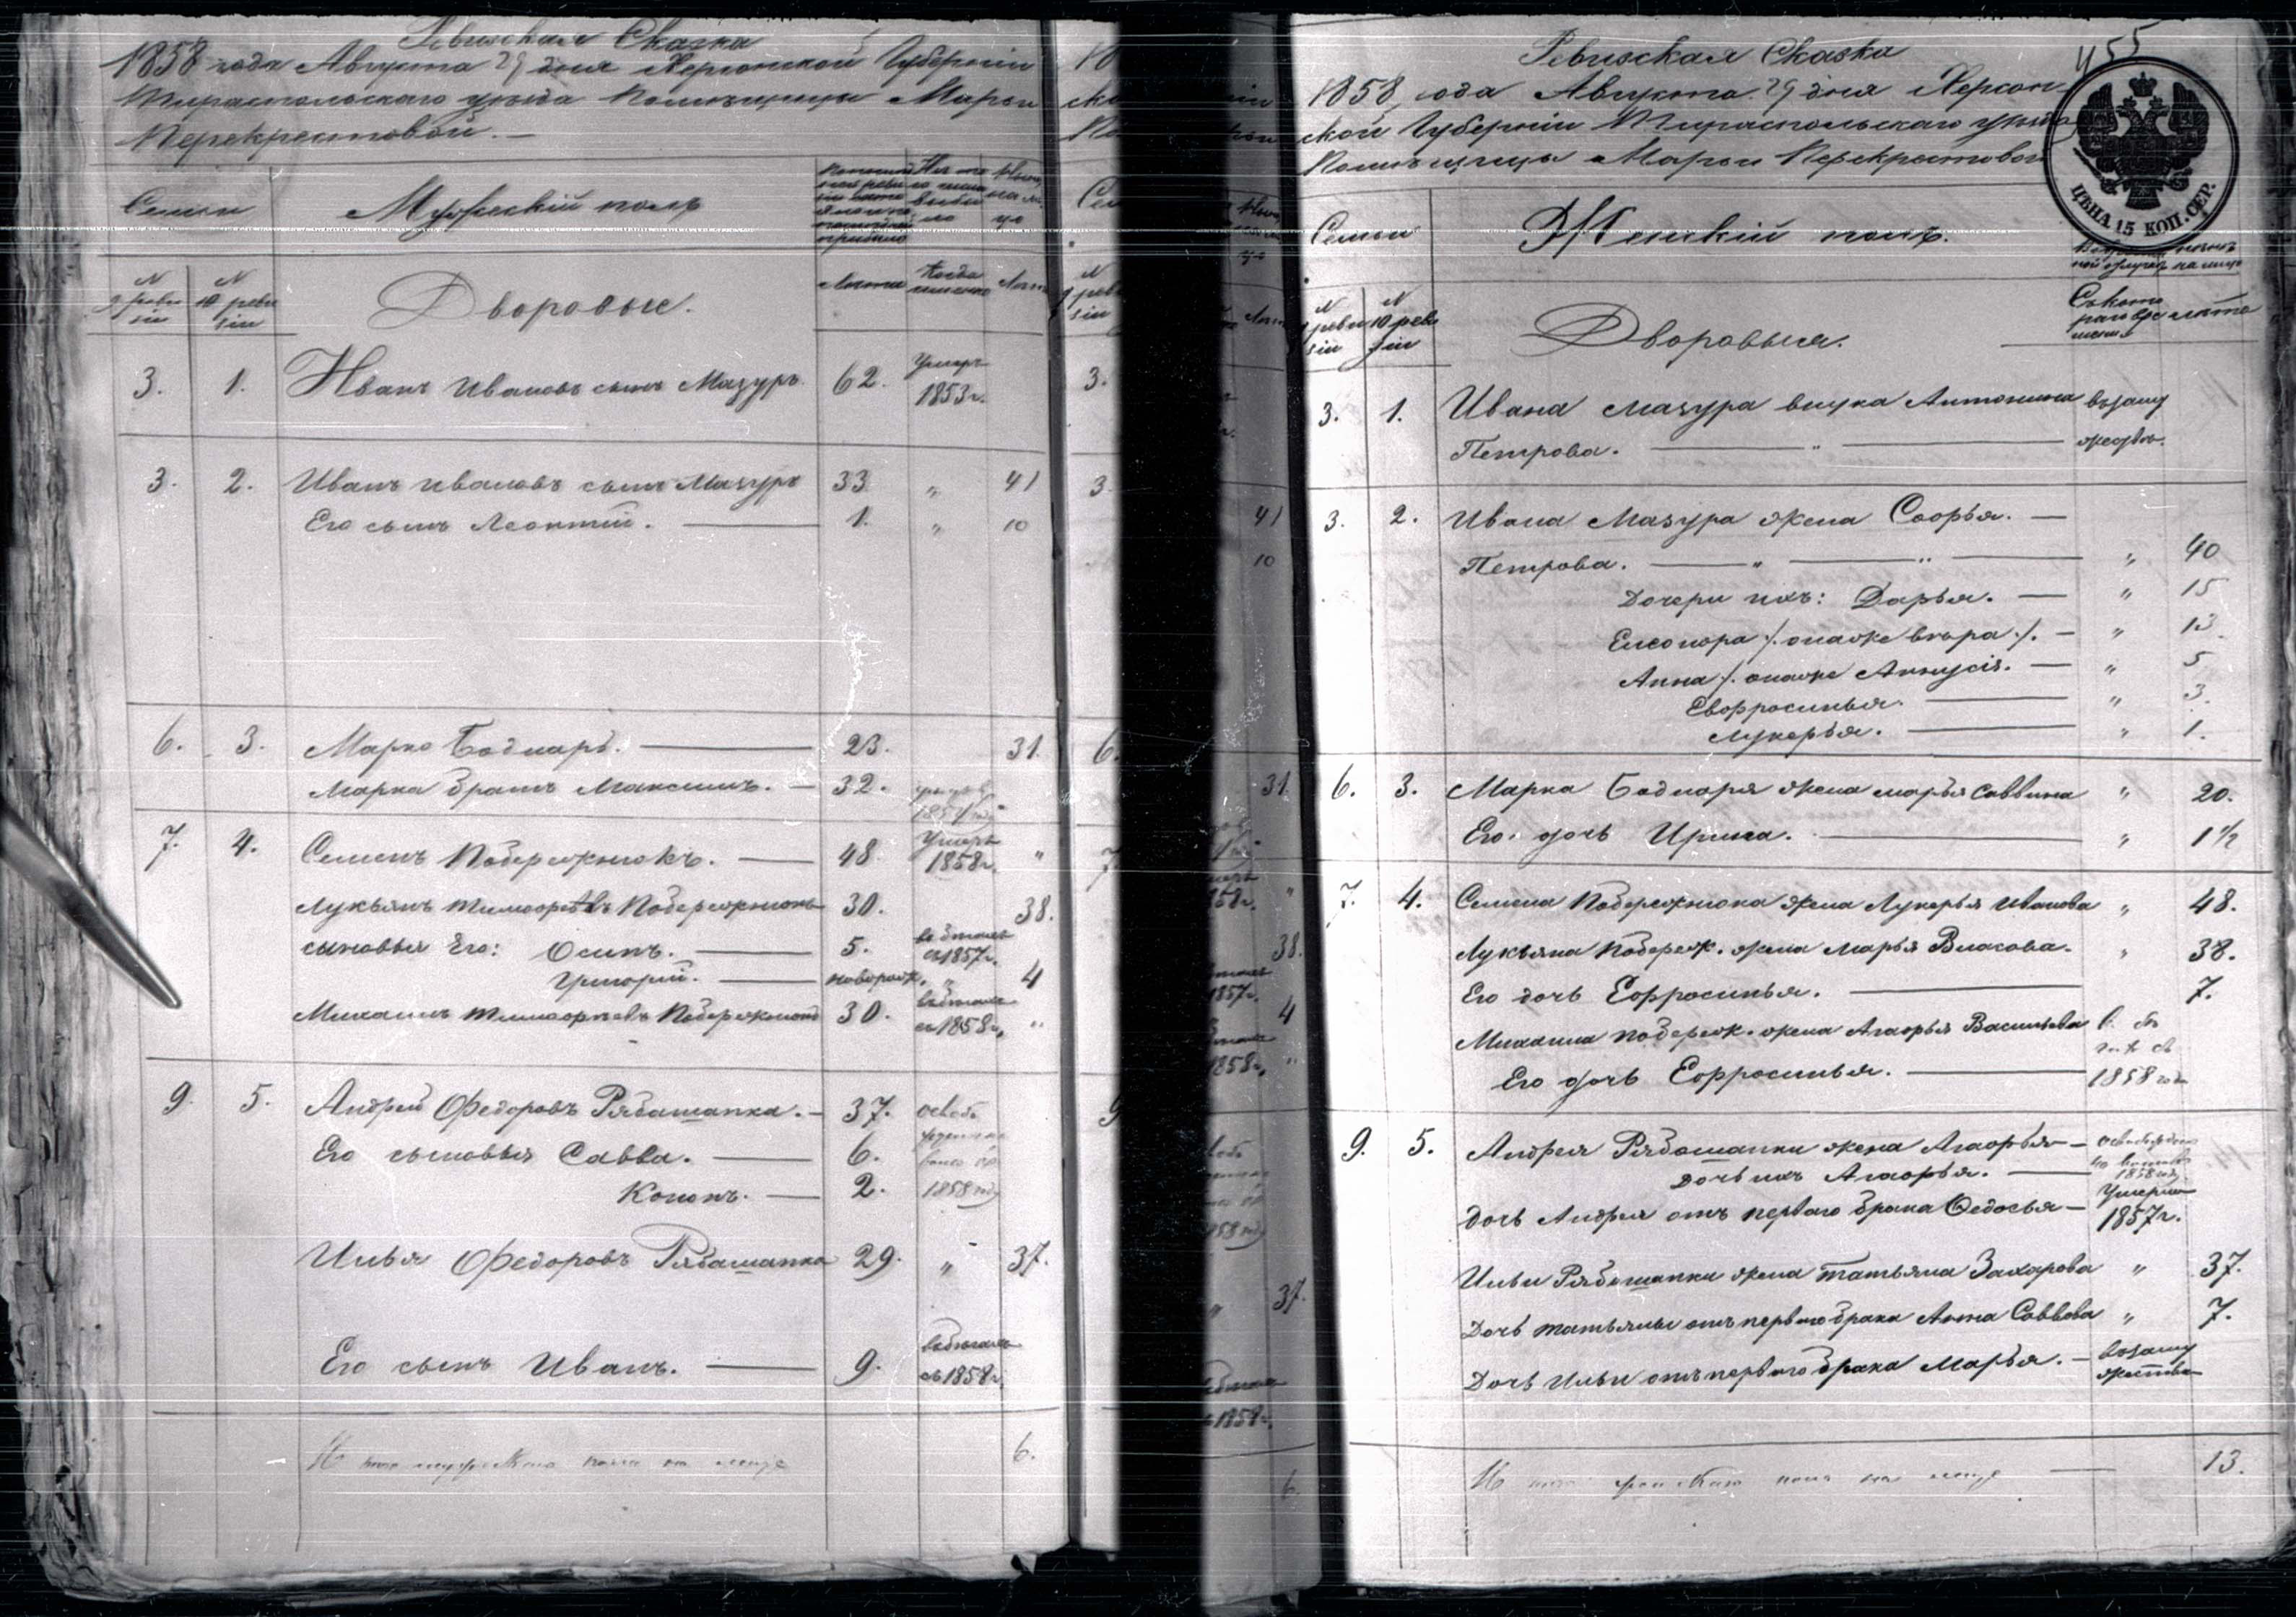 Ревизская Сказка
1858 года Августа 29 дня Херсонской Губерніи
Тираспольскаго уѣзда Помѣщицы Марьи
Перекрестовой. —
Семьи
Мужескій полъ
N 9 ревизіи
N 10 ревизіи
Дворовые.
Лѣта
Когда именно
Лѣта
3. 1. Иванъ Ивановъ сынъ Мазуръ. 62. Умеръ 1853 г.
3. 2. Иванъ Ивановъ сынъ Мазуръ 33 „ 41
Его сынъ Леонтій. — 1. „ 10
6. 3. Марко Боднарь. — 23. 31.
Марка братъ Максимъ. — 32.
7. 4. Семенъ Побережнюкъ. — 48. Умеръ 1858 г. „
Лукьянъ Тимофеевъ Побережнюкъ 30. 38.
сыновья Его: Осипъ. — 5. въ бѣгахъ съ 1857 г.
Григорій. — новорож. „ 4
Михаилъ Тимофеевъ Побережнюкъ 30. въ бѣгахъ съ 1858 г. „
9. 5. Андрей Федоровъ Рябошапка. — 37.
Его сыновья Савва. — 6.
Кононъ. — 2. 1858 году
Илья Федоровъ Рябошапка 29. „ 37.
Его сынъ Иванъ. — 9. въ бѣгахъ съ 1858 г.
Итого мужескаго пола на лицо 6.
455
Ревизская Сказка
1858 года Августа 29 дня Херсон-
ской Губерніи Тираспольскаго уѣзда
Помѣщицы Марьи Перекрестовой
ЦѢНА 15 КОП. СЕР.
Семьи
Женскій полъ.
N 9 ревизіи
N 10 ревизіи
Дворовыя.
лѣта
3. 1. Ивана Мазура внука Антонина въ заму
Петрова. — „ — жествѣ.
3. 2. Ивана Мазура жена Софья. —
Петрова. — „ — „ — „ 40
Дочери ихъ: Дарья. — „ 15
Елеонора /. она же Вѣра ./. — „ 13
Анна /. она же Аннусія. — „ 5
Евфросинья. — „ 3.
Лукерья. — „ 1.
6. 3. Марка Боднаря жена Марья Саввина „ 20.
Его дочь Ирина. — „ 1 1/2
7. 4. Семена Побережнюка жена Лукерья Иванова „ 48.
Лукьяна Побереж. жена Марья Власова. „ 38.
Его дочь Ефросинья. — 7.
Михаила Побереж. жена Агафья Васильева
Его дочь Ефросинья. — 1858 года
9. 5. Андрея Рябошапки жена Агафья —
Дочь ихъ Агафья. — 1858 году
Дочь Андрея отъ перваго брака Федосья — Умерла 1857 г.
Ильи Рябошапки жена Татьяна Захарова „ 37.
Дочь Татьяны отъ перваго брака Анна Саввова „ 7.
Дочь Ильи отъ перваго брака Марья. — въ заму
жествѣ
Итого женскаго пола на лицо — 13.